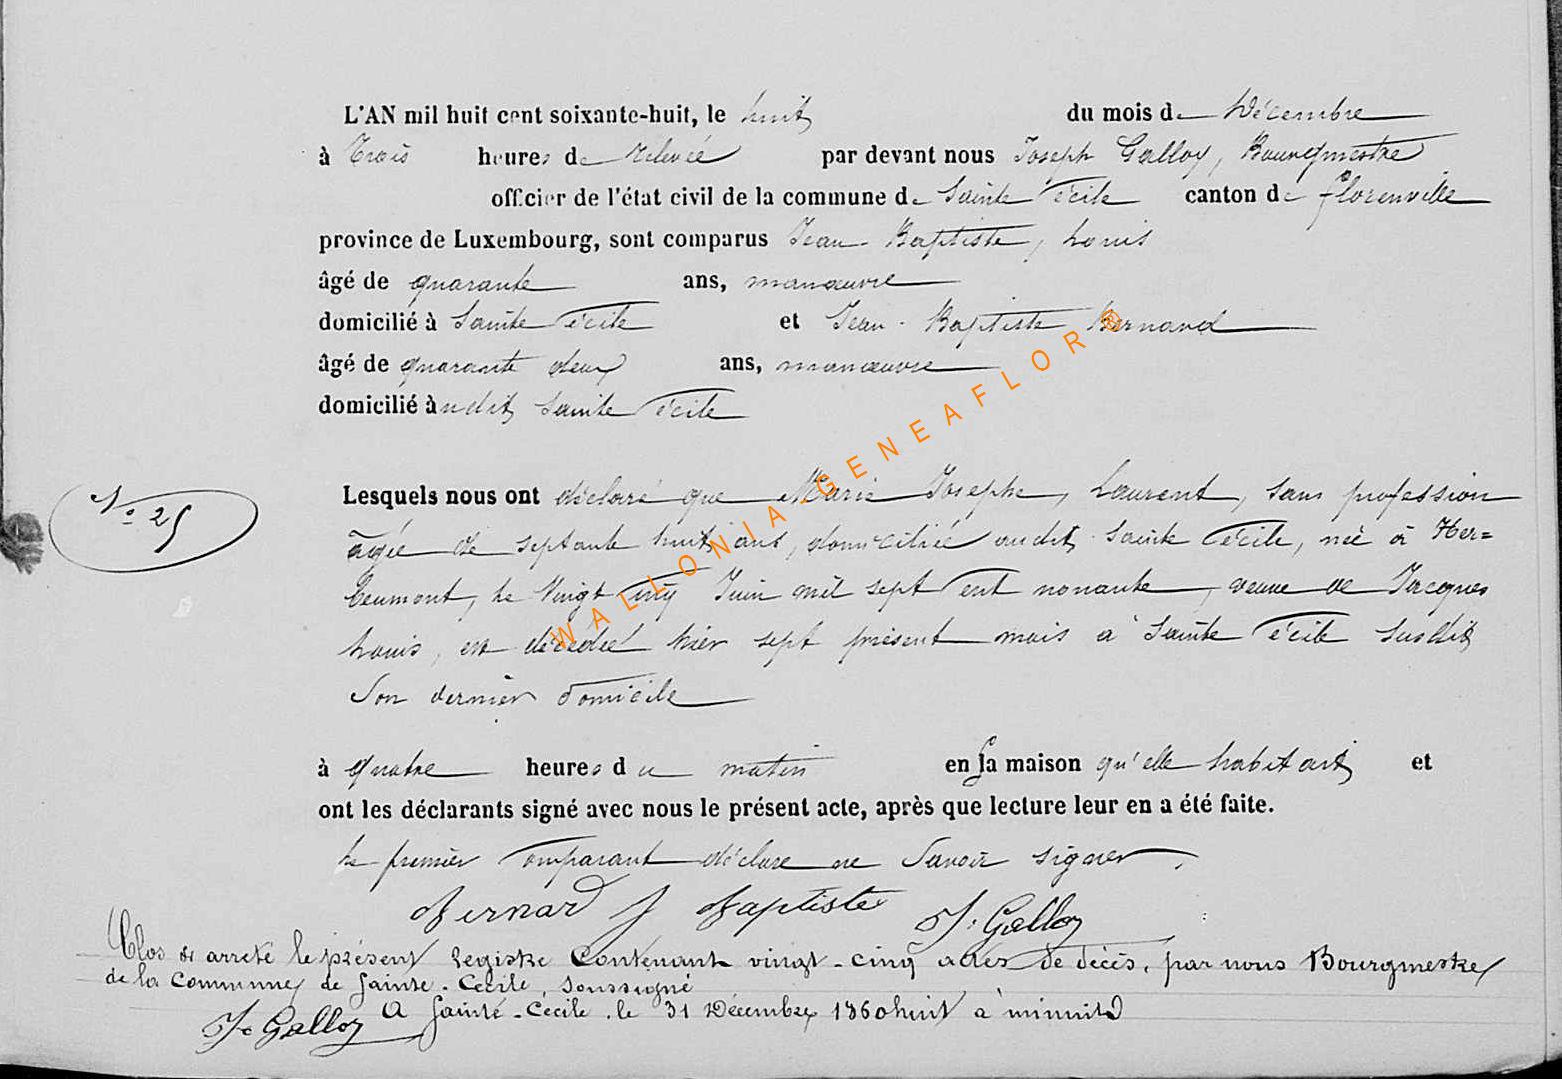 L'AN mil huit cent soixante-huit, le huit du mois de Décembre
à Trois heures de relevée par devant nous Joseph Galloy, Bourgmestre
officier de l'état civil de la commune de Sainte Cécile canton de florenville
province de Luxembourg, sont comparus Jean-Baptiste, Louis
âgé de quarante ans, manœuvre
domicilié à Sainte Cécile et Jean-Baptiste Bernard
âgé de quarante deux ans, manœuvre
domicilié àudit Sainte Cécile
Lesquels nous ont déclaré que Marie Josephe, Laurent, sans profession
No 25
âgée de septante huit ans, domiciliée audit Sainte Cécile, née à Her=
beumont, le Vingt Cinq Juin mil sept Cent nonante, veuve de Jacques
Louis, est décédée hier sept présent mois à Sainte Cécile susdit
Son dernier domicile
à quatre heures du matin en la maison qu'elle habitait et
ont les déclarants signé avec nous le présent acte, après que lecture leur en a été faite.
Le premier Comparant déclare ne Savoir signer.
Bernard J Baptiste J. Galloy
Clos & arrêté le présent registre Contenant vingt-cinq actes de décès, par nous Bourgmestre
de la Commune de Sainte-Cécile, soussigné
A Sainte-Cécile, le 31 Décembre 1860huit à minuit
J. Galloy
WALLONIA-GENEAFLOR®